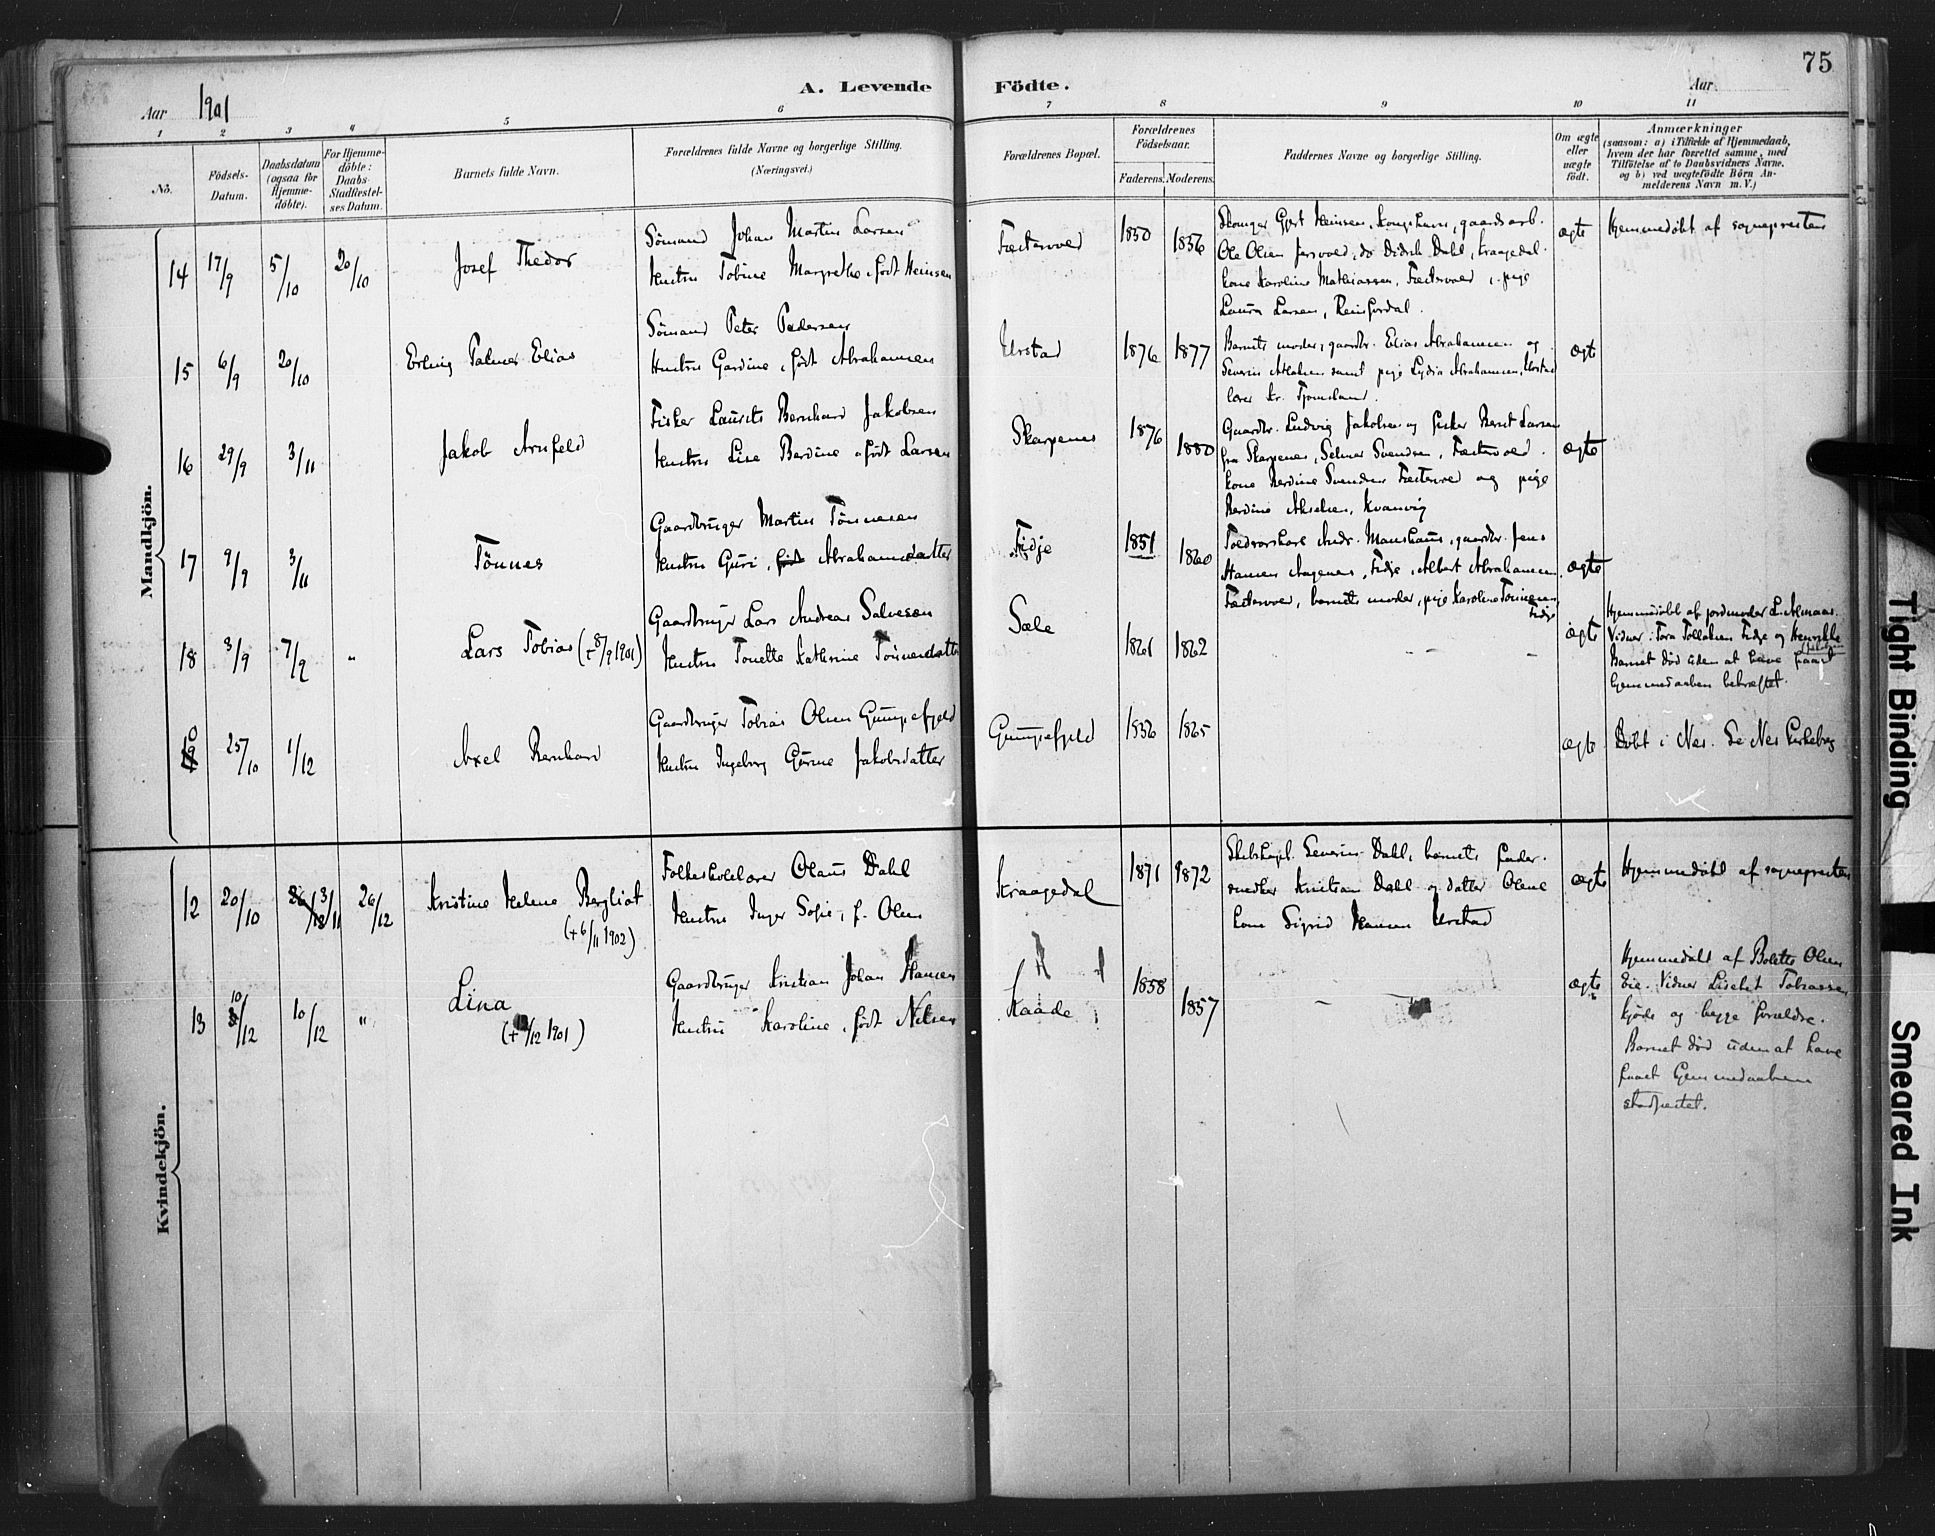 75
A. Levende Födte.
Aar 1901
Aar
1 2 3 4 5 6 7 8 9 10 11
No.
Födsels-Datum.
Daabsdatum (ogsaa for Hjemme-döbte).
For Hjemme-döbte: Daabs-Stadfæstel-ses Datum.
Barnets fulde Navn.
Forældrenes fulde Navne og borgerlige Stilling.
(Næringsvei.)
Forældrenes Bopæl.
Forældrenes Födselsaar.
Faderens. Moderens.
Faddernes Navne og borgerlige Stilling.
Om ægte eller uægte født.
Anmærkninger
(saasom: a) i Tilfælde af Hjemmedaab,
hvem der har forrettet samme, med
Tilføielse af to Daabsvidners Navne.
og b) ved uægtefödte Börn An-
melderens Navn m. V.)
Mandkjön.
14 17/9 5/10 20/10 Josef Thedor
Sömand Johan Martin Larsen
Hustru Tobine Margrethe, født Heinsen
1850 1856
Ole Olsen Didrik Dahl, Kraagedal
kone Karoline Mathiassen, pige
Laura Larsen,
ægte
Hjemmedøbt af sognepresten
15 6/9 20/10 Erling Palmer Elias
Sömand Peter Pedersen
Hustru Gardine, født Abrahamsen
Urstad 1876 1877
Barnets moder, gaardbr. Elias Abrahamsen og
Severin samt pige Lydia Abrahamsen, Urstad
lærer Kr.
ægte
16 29/9 3/11 Jakob Arnfeld
Fisker Laurits Bernhard Jakobsen
Hustru Lise Berdine født Larsen
Skarpenes 1876 1880
Gaardbr. Ludvig Jakobsen og fisker Bernt Larsen
fra Skarpenes, Selmer Svendsen,
kone Berdine Svendsen og pige
Berdine Akselsen, Kvanvig
ægte
17 9/9 3/11 Tønnes
Gaardbruger Martin Tønnesen
Hustru Guri, født Abrahamsdatter
Fidje 1851 1860
gaardbr. Jens
Hansen Aagenes, Fidje, Albert Abrahamsen
barnets moder, pige Karoline Tønnesen
Fidje
ægte
18 3/9 7/9 " Lars Tobias (+ 8/9 1901)
Gaardbruger Lars Andreas Salvesen
Hustru Tonette Kathrine Tønnesdatter
Sæle 1861 1862
ægte
Hjemmedøbt af jordmoder L. Almaas.
Vidner: Tora Tollaksen Fidje og Henrikke
Barnet død uden at have faaet
hjemmedaaben bekræftet.
25/10 1/12 Axel Bernhard
Gaardbruger Tobias Olsen Gumpefjeld
Hustru Ingeborg Gurine Jakobsdatter
Gumpefjeld 1856 1865
ægte
Døbt i Nes. Se Nes Kirkebog
Kvindekjön.
12 20/10 3/11 26/12 Kristine Helene Bergliot
(+ 6/11 1902)
Folkeskolelærer Olaus Dahl
Hustru Inger Sofie, f. Olsen
Kraagedal 1871 1872
Skibskapt. Severin Dahl, barnets fader.
snedker Kristian Dahl og datter Olene
kone Sigrid Hansen Urstad
ægte
Hjemmedøbt af sognepresten
13 10/12 10/12 " Lina
(+ 12/12 1901)
Gaardbruger Kristian Johan Hansen
Hustru Karoline, født Nilsen
Kaade 1858 1857
ægte
Hjemmedøbt af Bolette Olsen
Eie. Vidner Lisebet Tobiassen
og begge forældre.
Barnet død uden at have
faaet hjemmedaaben
stadfæstet.
Tight Binding
Smeared Ink